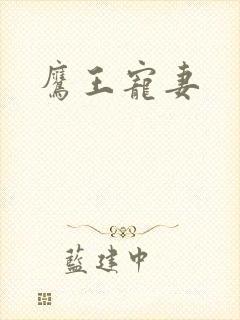 鷹王寵妻
藍建中